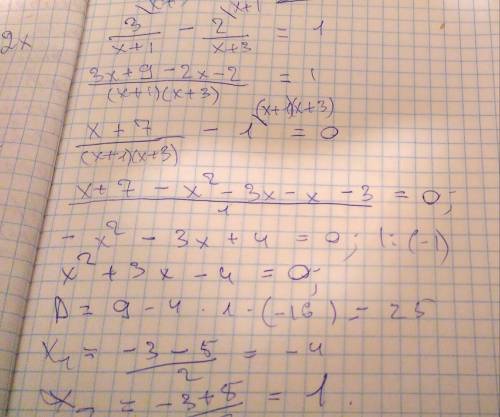 x+3 x+1
2x 3/(x+1) - 2/(x+3) = 1
(3x+9-2x-2)/((x+1)(x+3)) = 1
(x+7)/((x+1)(x+3)) - 1 (x+1)(x+3) = 0
(x+7-x²-3x-x-3)/1 = 0;
-x²-3x+4=0; |:(-1)
x²+3x-4=0;
D=9-4·1·(-16)=25
x₁=(-3-5)/2=-4
x₂=(-3+5)/2=1.